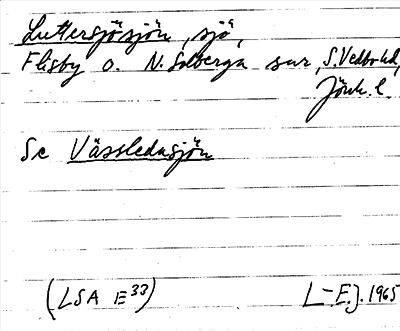 Luttersjösjön, sjö,
Flisby o. N. Solberga snr, S. Vedbo hd,
Jönk. l.
Se Vässledasjön
(LSA E33) L-E.J. 1965